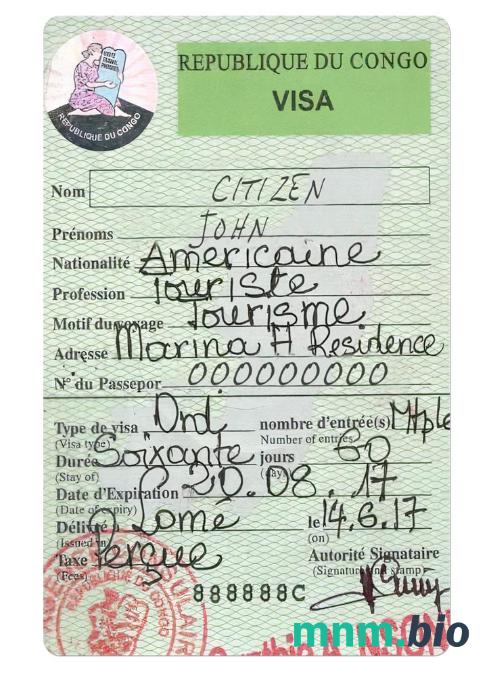 REPUBLIQUE DU CONGO
VISA
REPUBLIQUE DU CONGO
Nom CITIZEN
Prénoms JOHN
Nationalité Américaine
Profession Touriste
Motif du voyage Tourisme
Adresse Marina H Residence
N° du Passepor 000000000
Type de visa Ord nombre d'entrée(s) Mtple
(Visa type) Number of entries
Durée Soixante jours 60
(Stay of) (days)
Date d'Expiration 20.08.17
(Date of expiry)
Délivré à Lomé le 14.6.17
(Issued in) (on)
Taxe Perçue Autorité Signataire
(Fees) (Signature and stamp)
888888C
mnm.bio